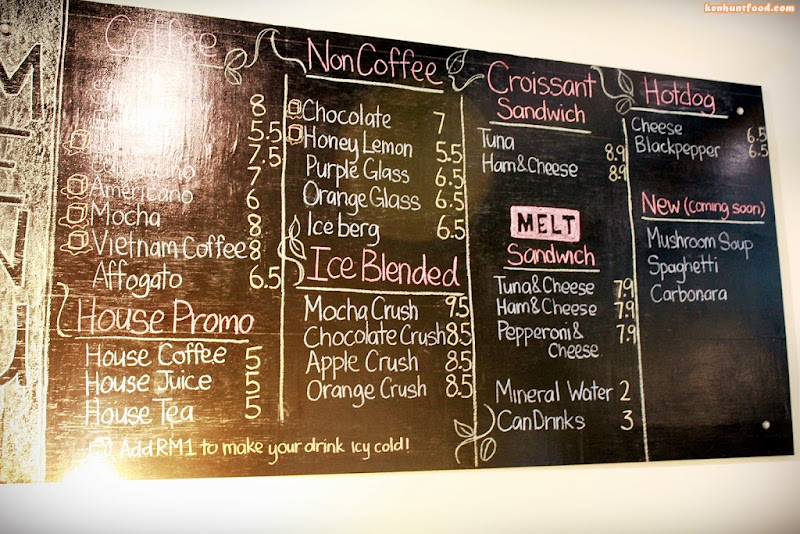 kenhuntfood.com
MENU
Coffee
8
5.5
7.5
7
Americano 6
Mocha 8
Vietnam Coffee 8
Affogato 6.5
House Promo
House Coffee 5
House Juice 5
House Tea 5
Add RM1 to make your drink Icy cold!
Non Coffee
Chocolate 7
Honey Lemon 5.5
Purple Glass 6.5
Orange Glass 6.5
Ice berg 6.5
Ice Blended
Mocha Crush 9.5
Chocolate Crush 8.5
Apple Crush 8.5
Orange Crush 8.5
Croissant
Sandwich
Tuna 8.9
Ham & Cheese 8.9
MELT
Sandwich
Tuna & Cheese 7.9
Ham & Cheese 7.9
Pepperoni & 7.9
Cheese
Mineral Water 2
Can Drinks 3
Hotdog
Cheese 6.5
Blackpepper 6.5
New (coming soon)
Mushroom Soup
Spaghetti
Carbonara